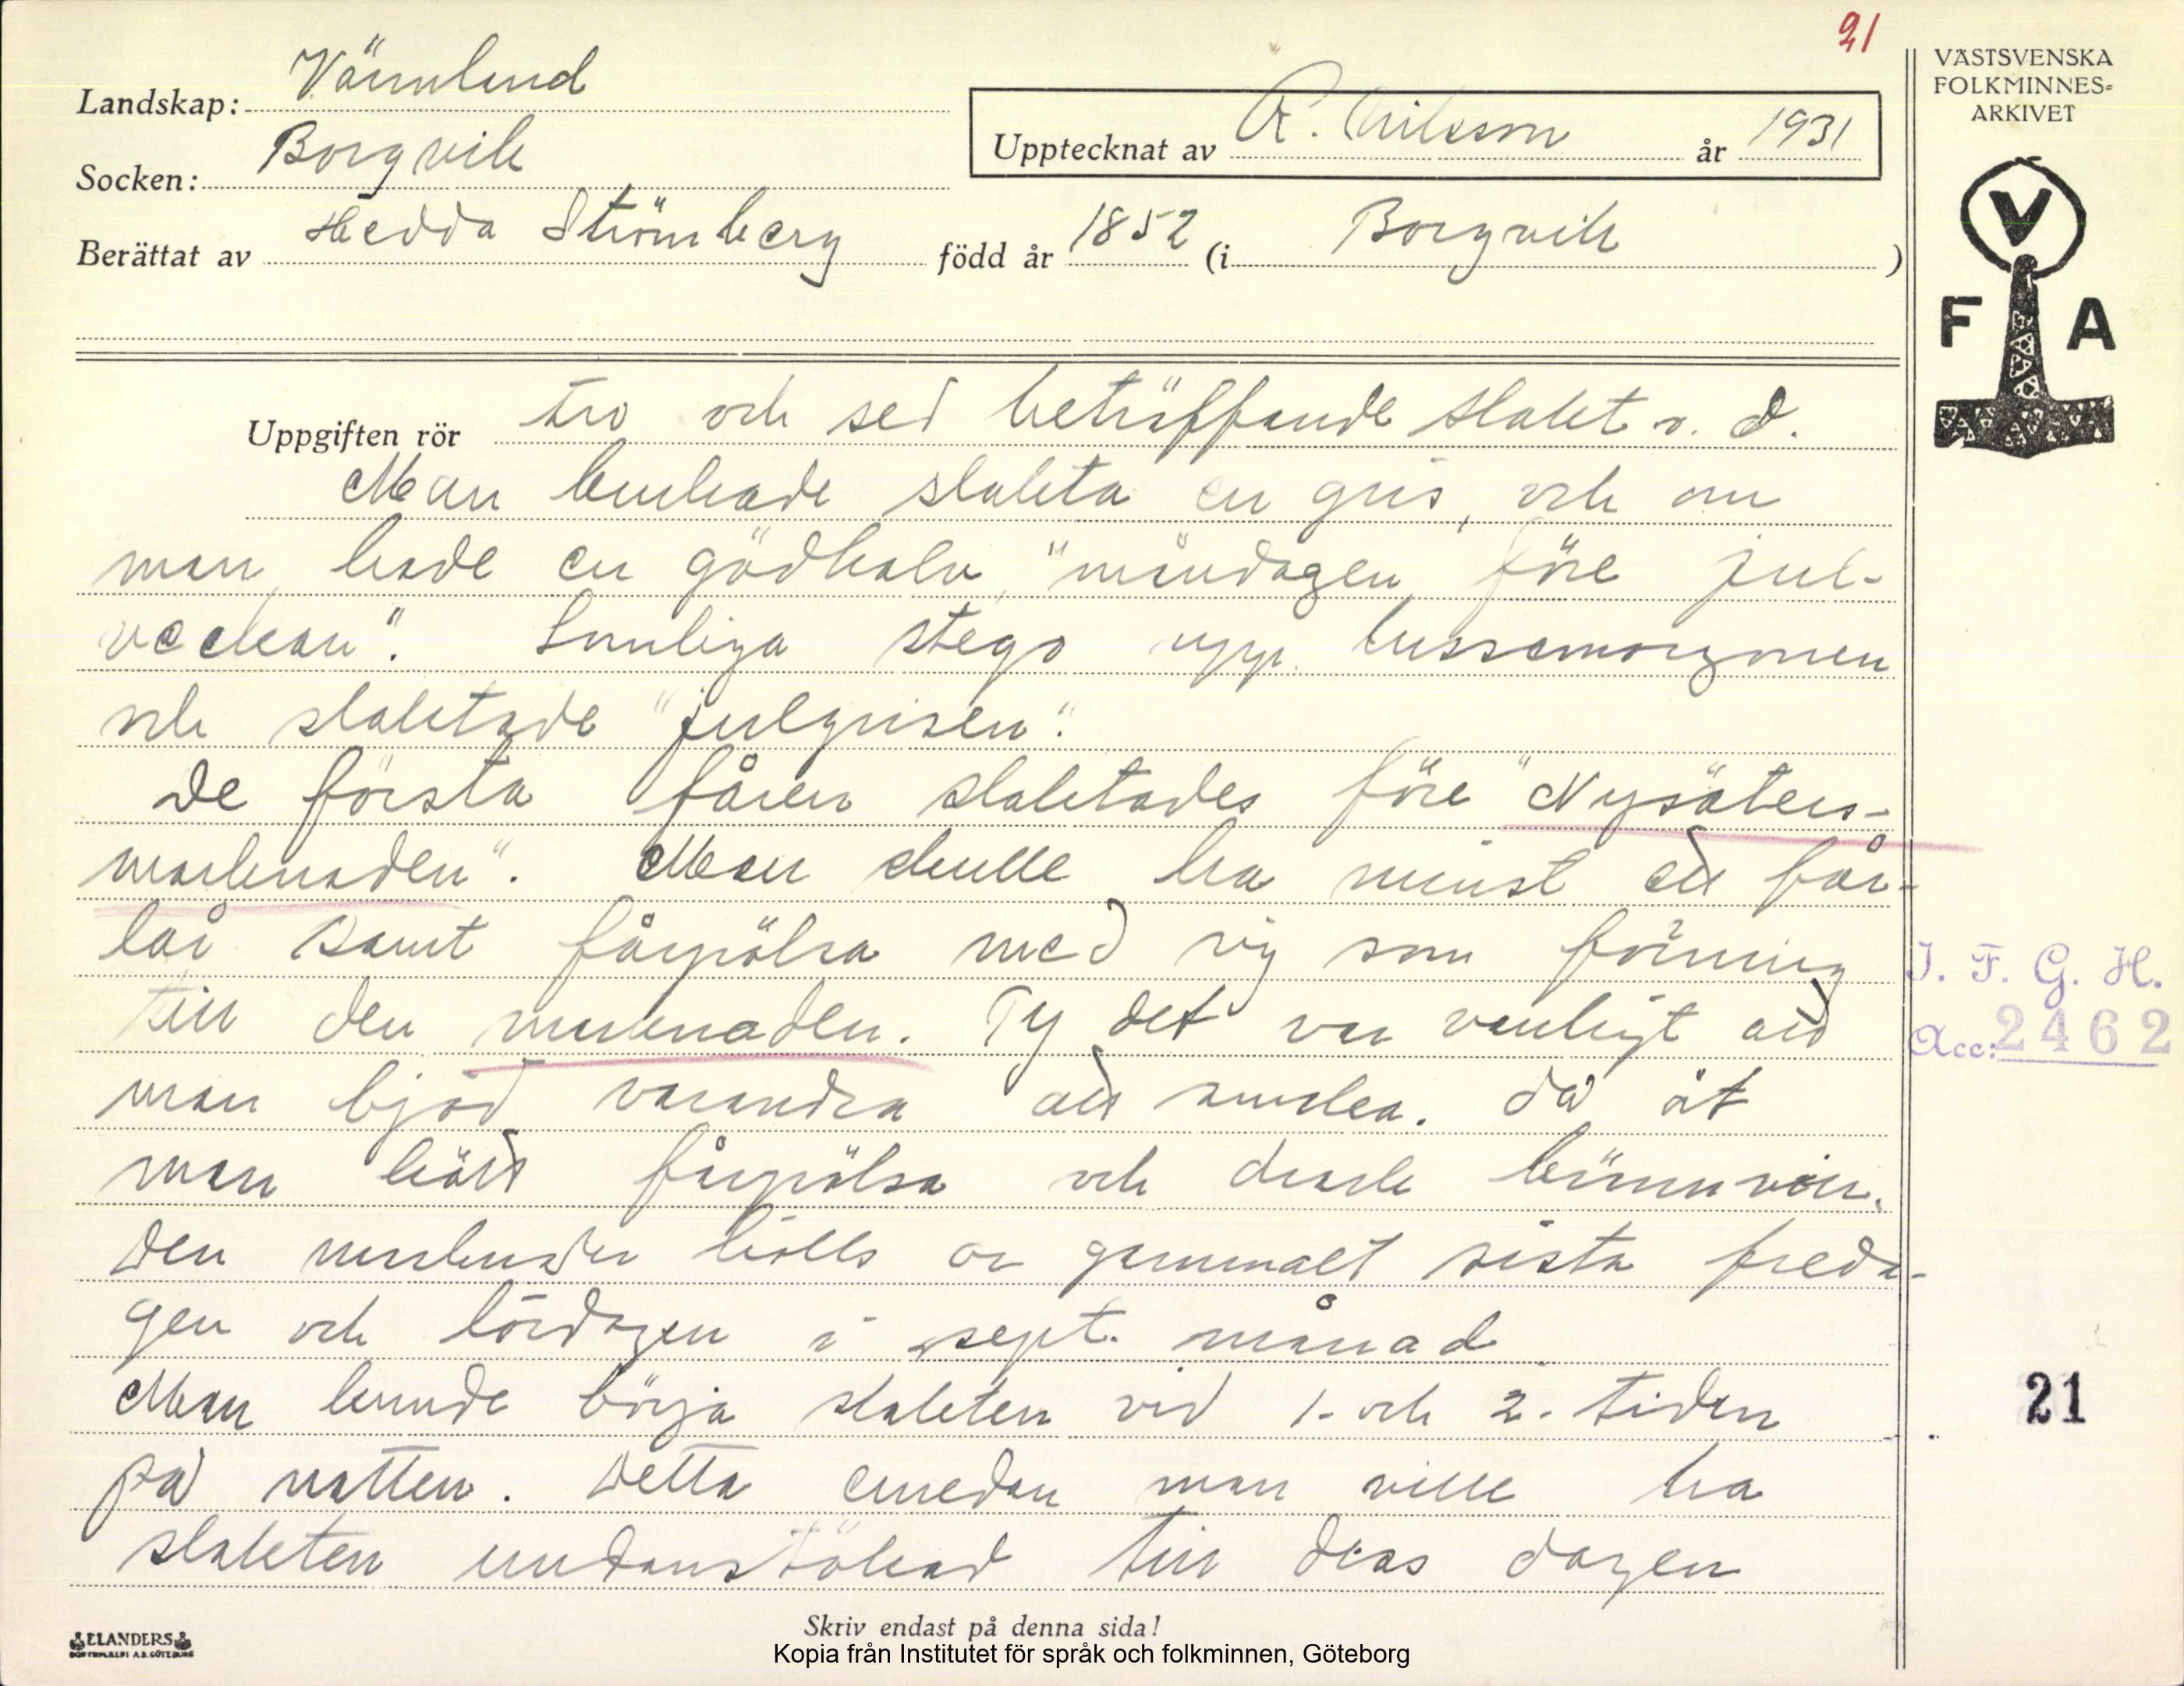 21
VÄSTSVENSKA
FOLKMINNES=
ARKIVET
Landskap: Värmland
Upptecknat av R. Nilsson år 1931
Socken: Borgvik
Berättat av Hedda Strömberg född år 1852 (i Borgvik)
V
F A
Uppgiften rör tro och sed beträffande slakt o. d.
Man brukade slakta en gris, och om
man hade en gödkalv, "måndagen före jul-
veckan". Somliga stego upp lussemorgonen
och slaktade "julgrisen".
De första fåren slaktades före "Nysäters-
marknaden". Man skulle ha minst ett får-
lår samt fårpölsa med sig som förning
till den marknaden. Ty det var vanligt att
man bjöd varandra att smaka. Då åt
man kött fårpölsa och drack brännvin.
Den marknaden hölls av gammalt sista freda-
gen och lördagen i sept. månad
Man kunde börja slakten vid 1- och 2-tiden
på natten. Detta emedan man ville ha
slakten undanstökad till dess dagen
I. F. G. H.
Acc: 2462
21
ELANDERS
BOKTRYCKERI A.B. GÖTEBORG
Skriv endast på denna sida!
Kopia från Institutet för språk och folkminnen, Göteborg